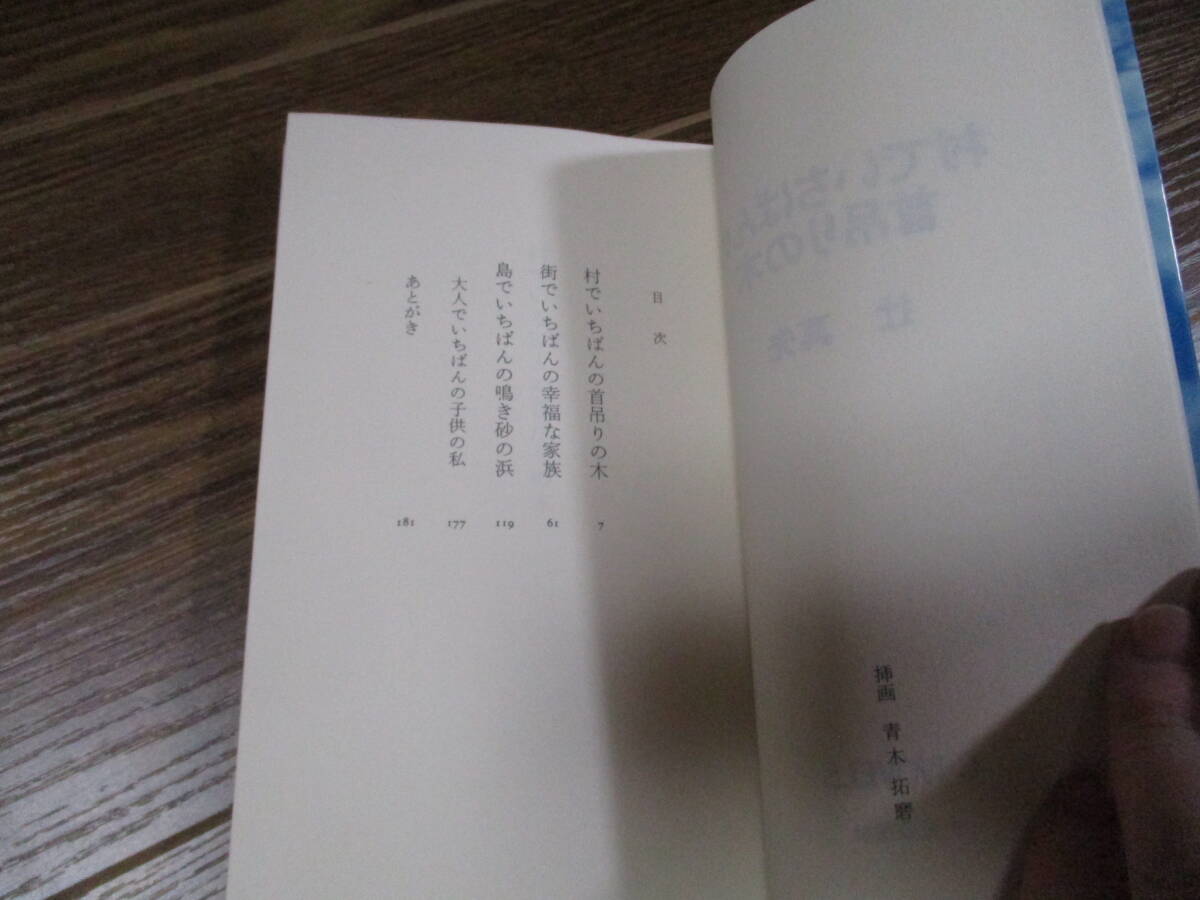 村でいちばんの
首吊りの木
辻 真先
挿画 青木拓磨
目次
村でいちばんの首吊りの木 7
街でいちばんの幸福な家族 61
島でいちばんの鳴き砂の浜 119
大人でいちばんの子供の私 177
あとがき 181